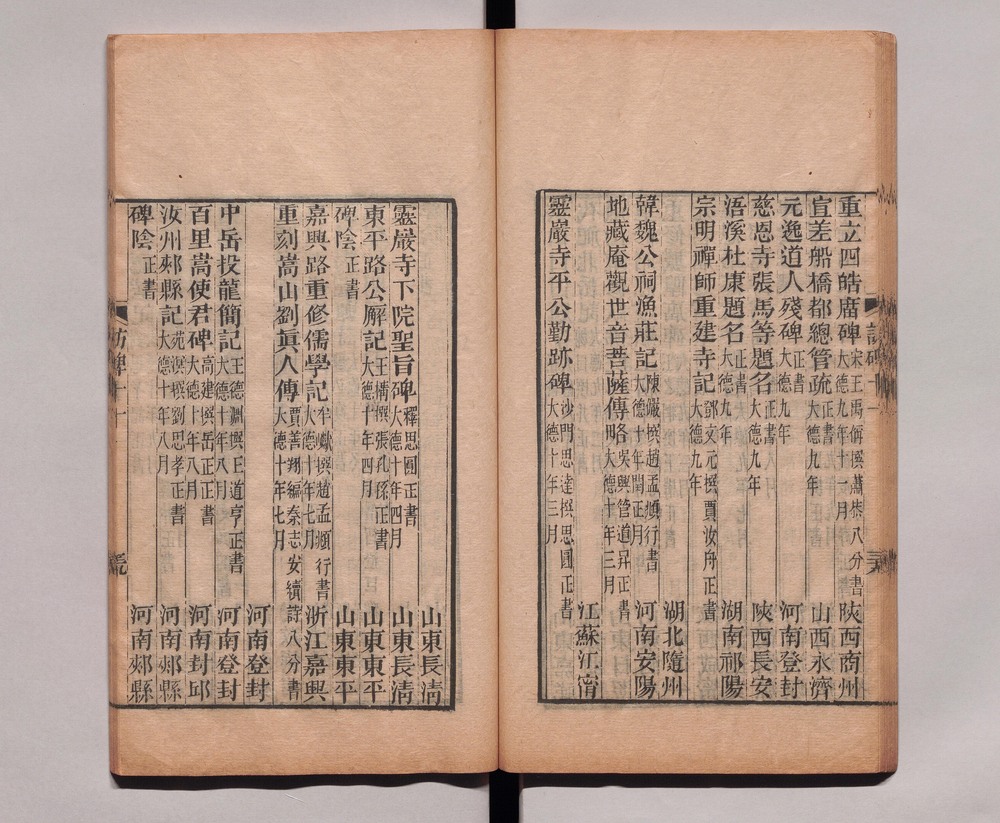 重立四皓廟碑 宋王禹偁撰蕭恭八分書 大德九年十一月 陜西商州
宣差船橋都總管疏 正書 大德九年 山西永濟
元逸道人殘碑 正書 大德九年 河南登封
慈恩寺張馬等題名 正書八月 大德九年 陜西長安
浯溪杜康題名 正書 大德九年 湖南祁陽
宗明禪師重建寺記 鄧文元撰賈汝舟正書 大德九年
湖北隨州
韓魏公祠漁莊記 陳儼撰趙孟頫行書 大德十年閏正月 河南安陽
地藏庵觀世音菩薩傳略 吳興管道昇正書 大德十年三月
江蘇江甯
靈巖寺平公勤跡碑 沙門思達撰思圓正書 大德十年三月
山東長清
靈巖寺下院聖旨碑 釋思圓正書 大德十年四月 山東長清
東平路公廨記 王構撰張孔孫正書 大德十年四月 山東東平
碑陰 正書 山東東平
嘉興路重修儒學記 牟巘撰趙孟頫行書 大德十年七月 浙江嘉興
重刻嵩山劉眞人傳 賈善翔編秦志安續詩八分書 大德十年七月
河南登封
中岳投龍簡記 王德淵撰王道亨正書 大德十年八月 河南登封
百里嵩使君碑 高建撰岳正正書 大德十年八月 河南封邱
汝州郟縣記 苑溟撰劉思孝正書 大德十年八月 河南郟縣
碑陰 正書 河南郟縣
訪碑十一